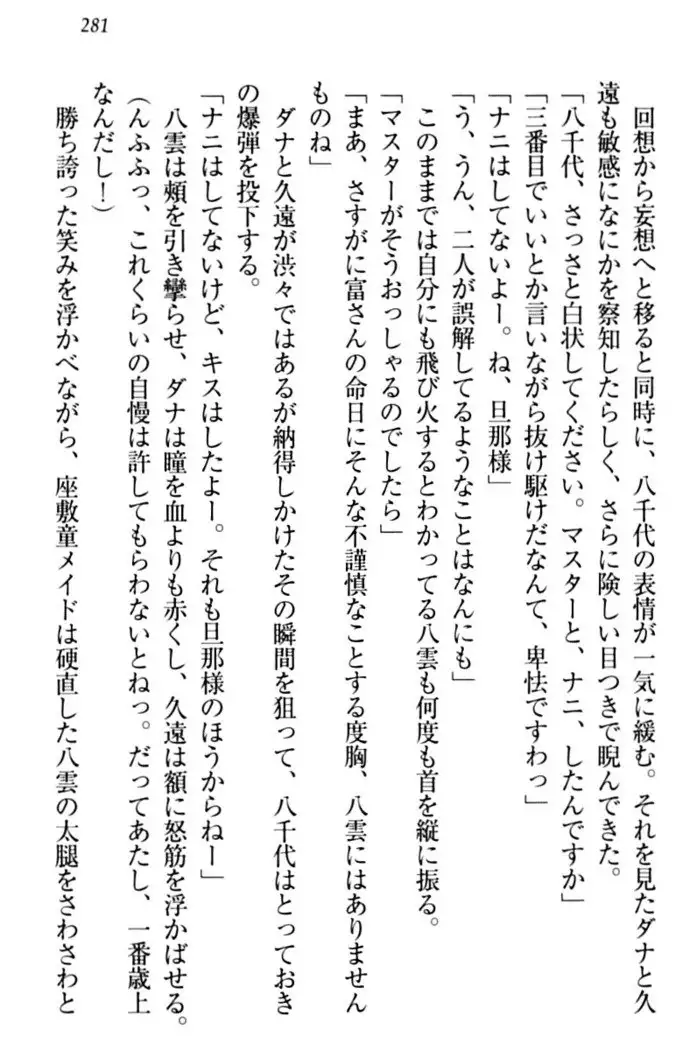 281
回想から妄想へと移ると同時に、八千代の表情が一気に緩む。それを見たダナと久
遠も敏感になにかを察知したらしく、さらに険しい目つきで睨んできた。
「八千代、さっさと白状してください。マスターと、ナニ、したんですか」
「三番目でいいとか言いながら抜け駆けだなんて、卑怯ですわっ」
「ナニはしてないよー。ね、旦那様」
「う、うん、二人が誤解してるようなことはなんにも」
このままでは自分にも飛び火するとわかってる八雲も何度も首を縦に振る。
「マスターがそうおっしゃるのでしたら」
「まあ、さすがに富さんの命日にそんな不謹慎なことする度胸、八雲にはありません
ものね」
ダナと久遠が渋々ではあるが納得しかけたその瞬間を狙って、八千代はとっておき
の爆弾を投下する。
「ナニはしてないけど、キスはしたよー。それも旦那様のほうからねー」
八雲は頬を引き攣らせ、ダナは瞳を血よりも赤くし、久遠は額に怒筋を浮かばせる。
（んふふっ、これくらいの自慢は許してもらわないとねっ。だってあたし、一番歳上
なんだし！）
勝ち誇った笑みを浮かべながら、座敷童メイドは硬直した八雲の太腿をさわさわと